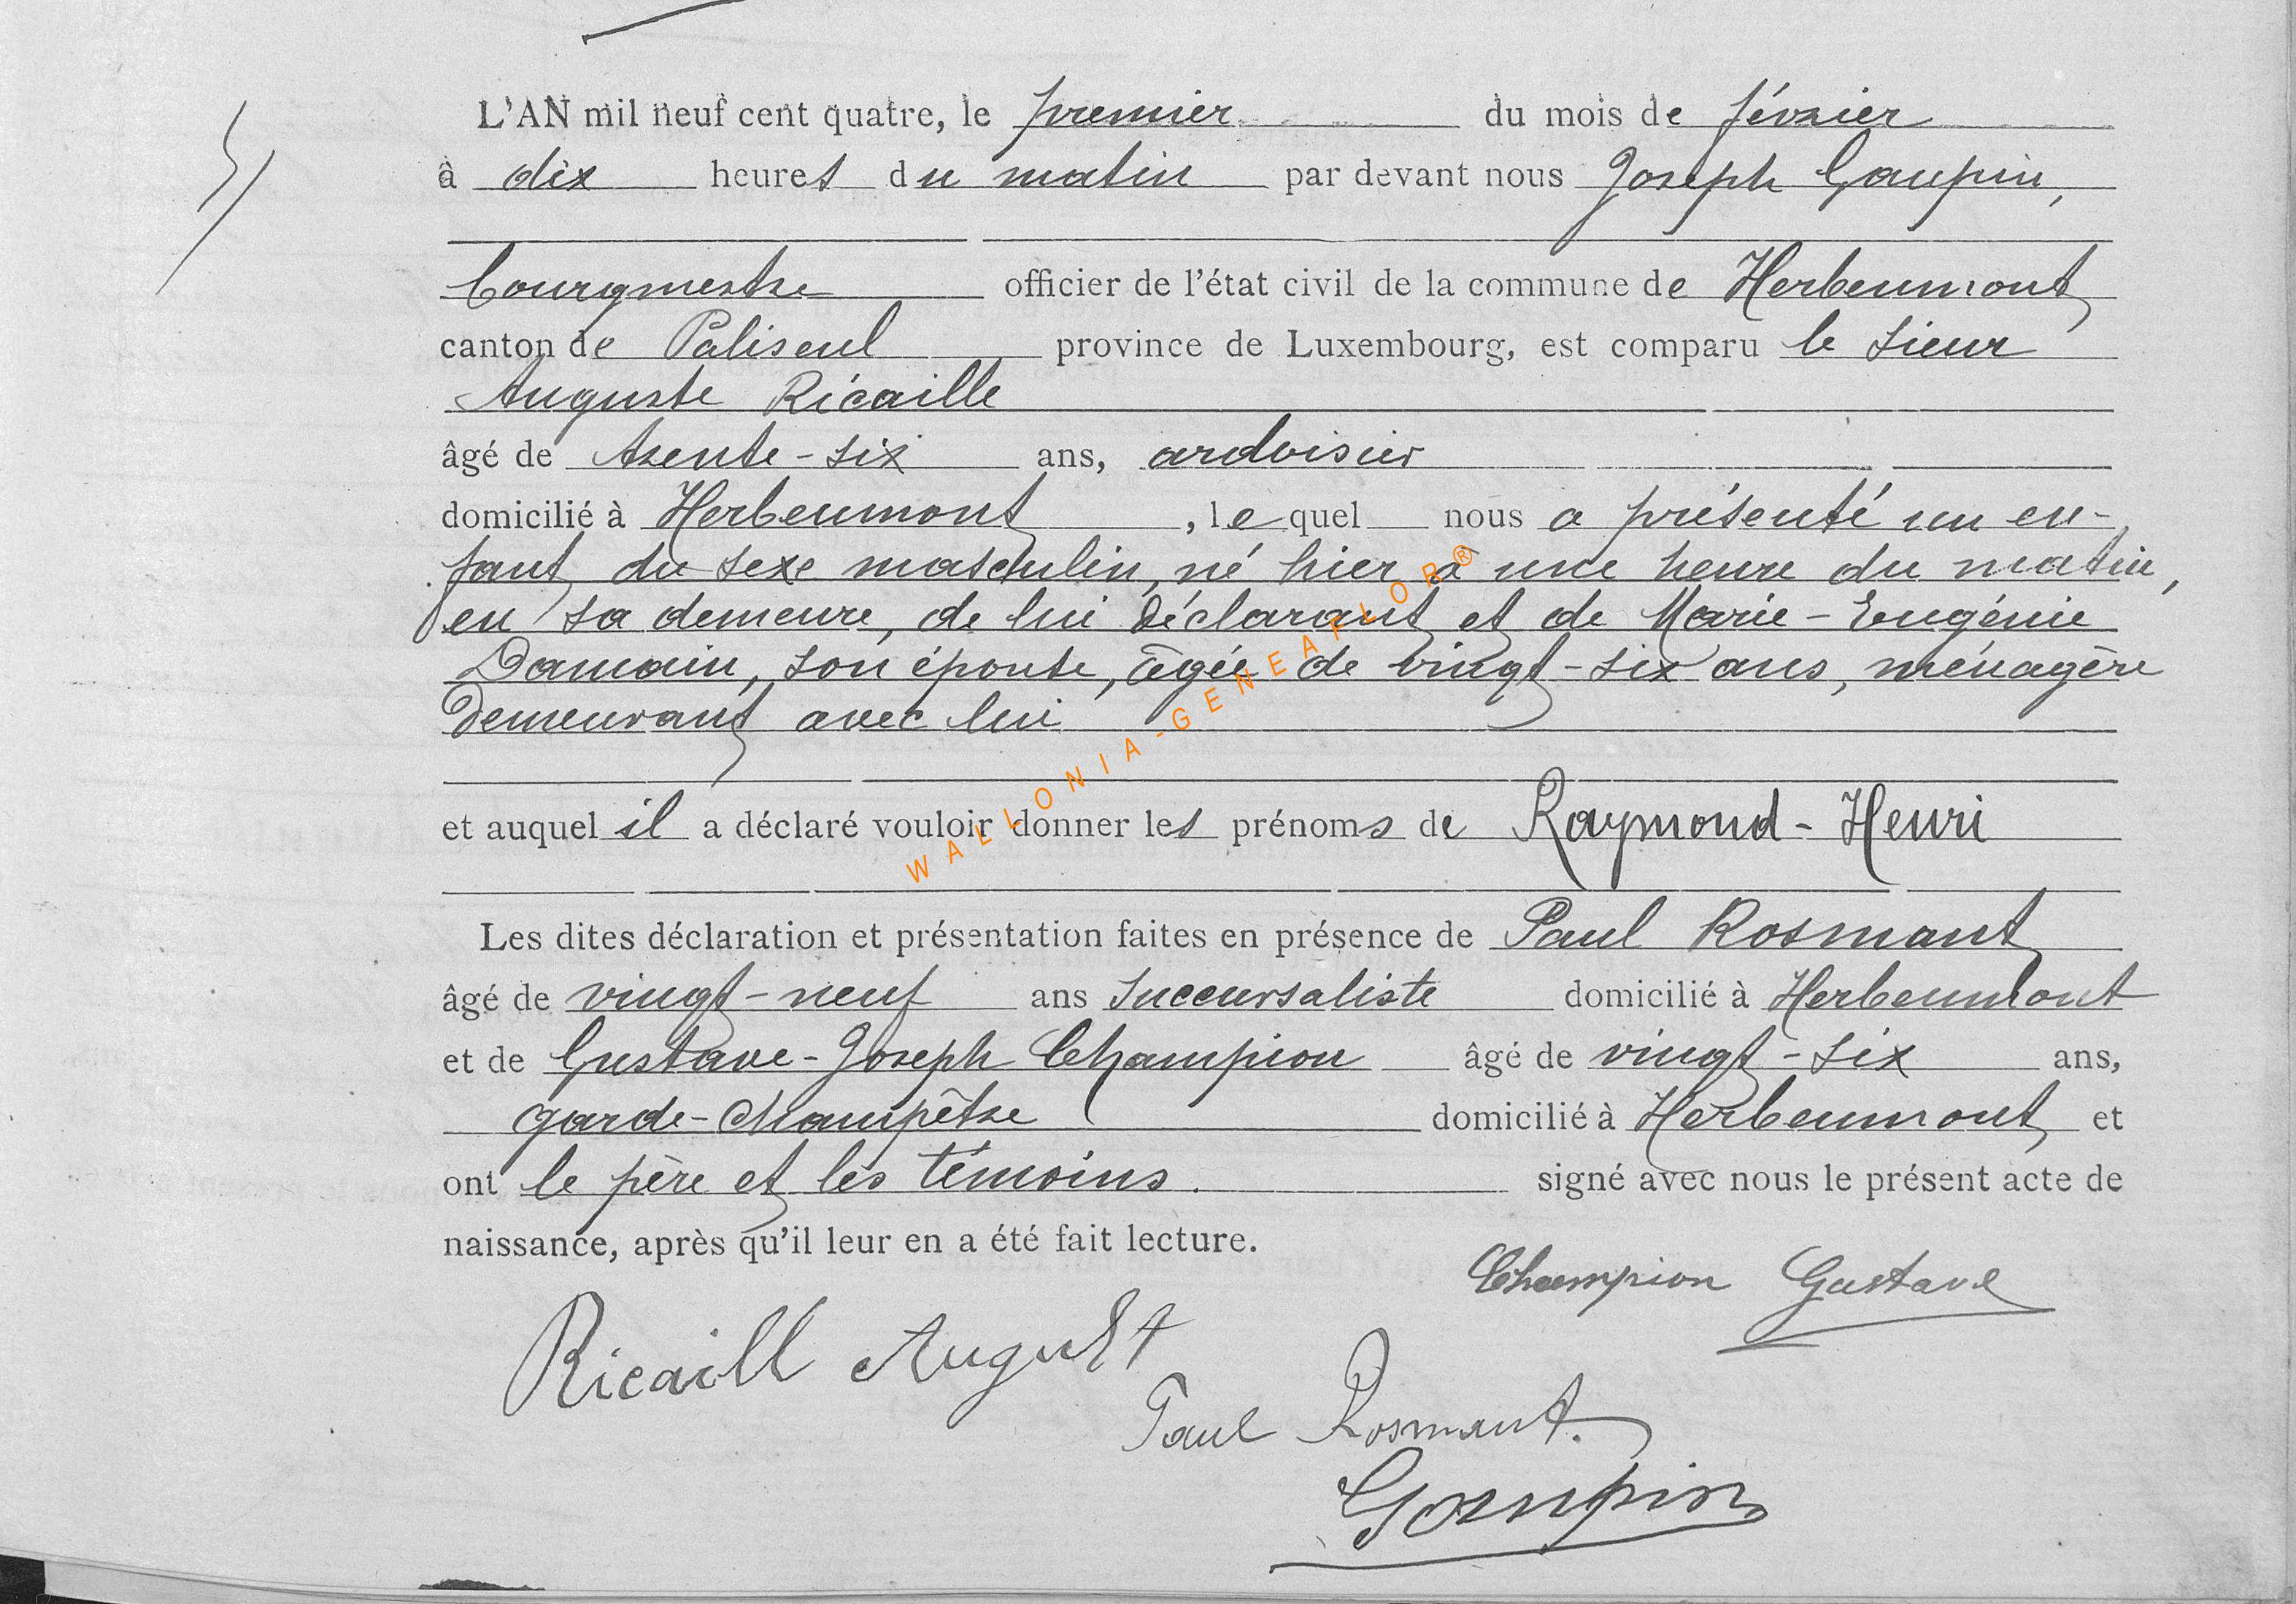 L'AN mil neuf cent quatre, le premier du mois de février
à dix heures du matin par devant nous Joseph Gaupin,
bourgmestre officier de l'état civil de la commune de Herbeumont
canton de Paliseul province de Luxembourg, est comparu le sieur
Auguste Ricaille
âgé de trente-six ans, ardoisier
domicilié à Herbeumont, lequel nous a présenté un en-
fant du sexe masculin, né hier à une heure du matin,
en sa demeure, de lui déclarant et de Marie-Eugénie
Damain, son épouse, âgée de vingt-six ans, ménagère
demeurant avec lui
et auquel il a déclaré vouloir donner les prénoms de Raymond-Henri
Les dites déclaration et présentation faites en présence de Paul Rosmant
âgé de vingt-neuf ans succursaliste domicilié à Herbeumont
et de Gustave-Joseph Champion âgé de vingt-six ans,
garde-champêtre domicilié à Herbeumont et
ont le père et les témoins. signé avec nous le présent acte de
naissance, après qu'il leur en a été fait lecture.
Champion Gustave
Ricaill August
Paul Rosmant.
Gaupin
WALLONIA-GENEAFLOR®